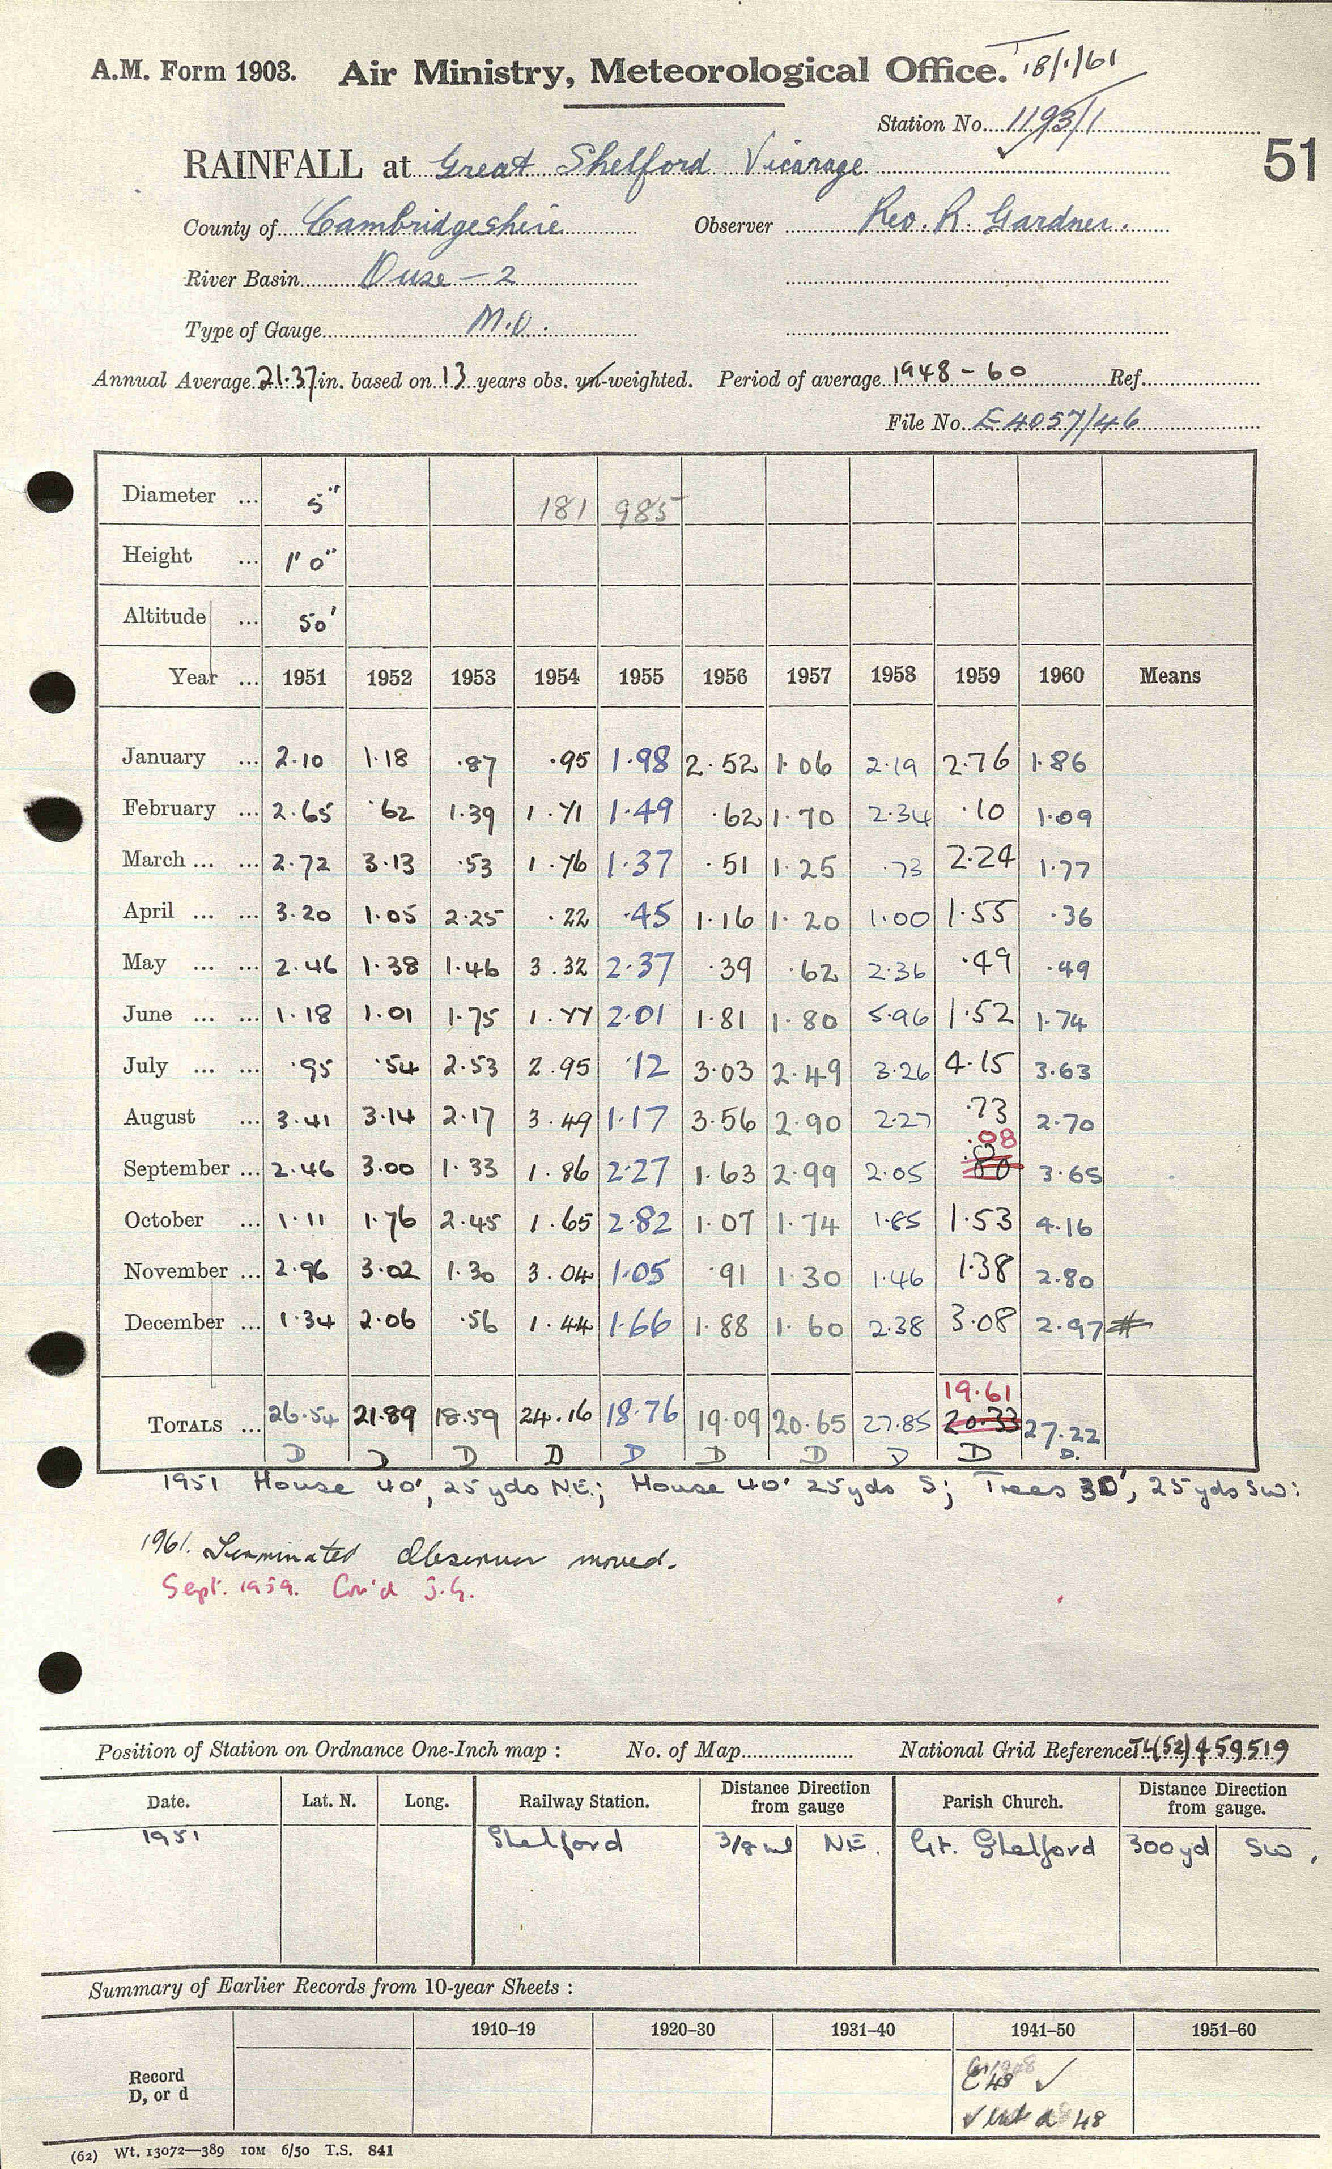 A.M. Form 1903. Air Ministry, Meteorological Office. 18/1/61
Station No. 1193/1
51
RAINFALL at Great Shelford Vicarage
County of Cambridgeshire Observer Rev. R. Gardner.
River Basin Ouse - 2
Type of Gauge M.O.
Annual Average 21.37 in. based on 13 years obs. un-weighted. Period of average 1948 - 60 Ref.
File No. E4057/46
Diameter ... 5" 181 985
Height ... 1' 0"
Altitude ... 50'
Year ... 1951 1952 1953 1954 1955 1956 1957 1958 1959 1960 Means
January ... 2.10 1.18 .87 .95 1.98 2.52 1.06 2.19 2.76 1.86
February ... 2.65 .62 1.39 1.71 1.49 .62 1.70 2.34 .10 1.09
March ... ... 2.72 3.13 .53 1.76 1.37 .51 1.25 .73 2.24 1.77
April ... ... 3.20 1.05 2.25 .22 .45 1.16 1.20 1.00 1.55 .36
May ... ... 2.46 1.38 1.46 3.32 2.37 .39 .62 2.36 .49 .49
June ... ... 1.18 1.01 1.75 1.77 2.01 1.81 1.80 5.96 1.52 1.74
July ... ... .95 .54 2.53 2.95 .12 3.03 2.49 3.26 4.15 3.63
August ... 3.41 3.14 2.17 3.49 1.17 3.56 2.90 2.27 .73 2.70
.08
September ... 2.46 3.00 1.33 1.86 2.27 1.63 2.99 2.05 .80 3.65
October ... 1.11 1.76 2.45 1.65 2.82 1.07 1.74 1.85 1.53 4.16
November ... 2.96 3.02 1.30 3.04 1.05 .91 1.30 1.46 1.38 2.80
December ... 1.34 2.06 .56 1.44 1.66 1.88 1.60 2.38 3.08 2.97 #
19.61
TOTALS ... 26.54 21.89 18.59 24.16 18.76 19.09 20.65 27.85 20.33 27.22
D D D D D D D D D D.
1951 House 40', 25 yds NE; House 40' 25 yds S; Trees 30', 25 yds SW:
1961. Terminated Observer moved.
Sept. 1959. Con'd J.G.
Position of Station on Ordnance One-Inch map : No. of Map National Grid Reference TL(52) 459519
Date. Lat. N. Long. Railway Station. Distance Direction from gauge Parish Church. Distance Direction from gauge.
1951 Shelford 3/8 ml NE. Gt. Shelford 300 yd SW.
Summary of Earlier Records from 10-year Sheets :
1910–19 1920–30 1931–40 1941–50 1951–60
Record
D, or d
48 ✓
✓ 48
(62) Wt. 13072—389 10M 6/50 T.S. 841